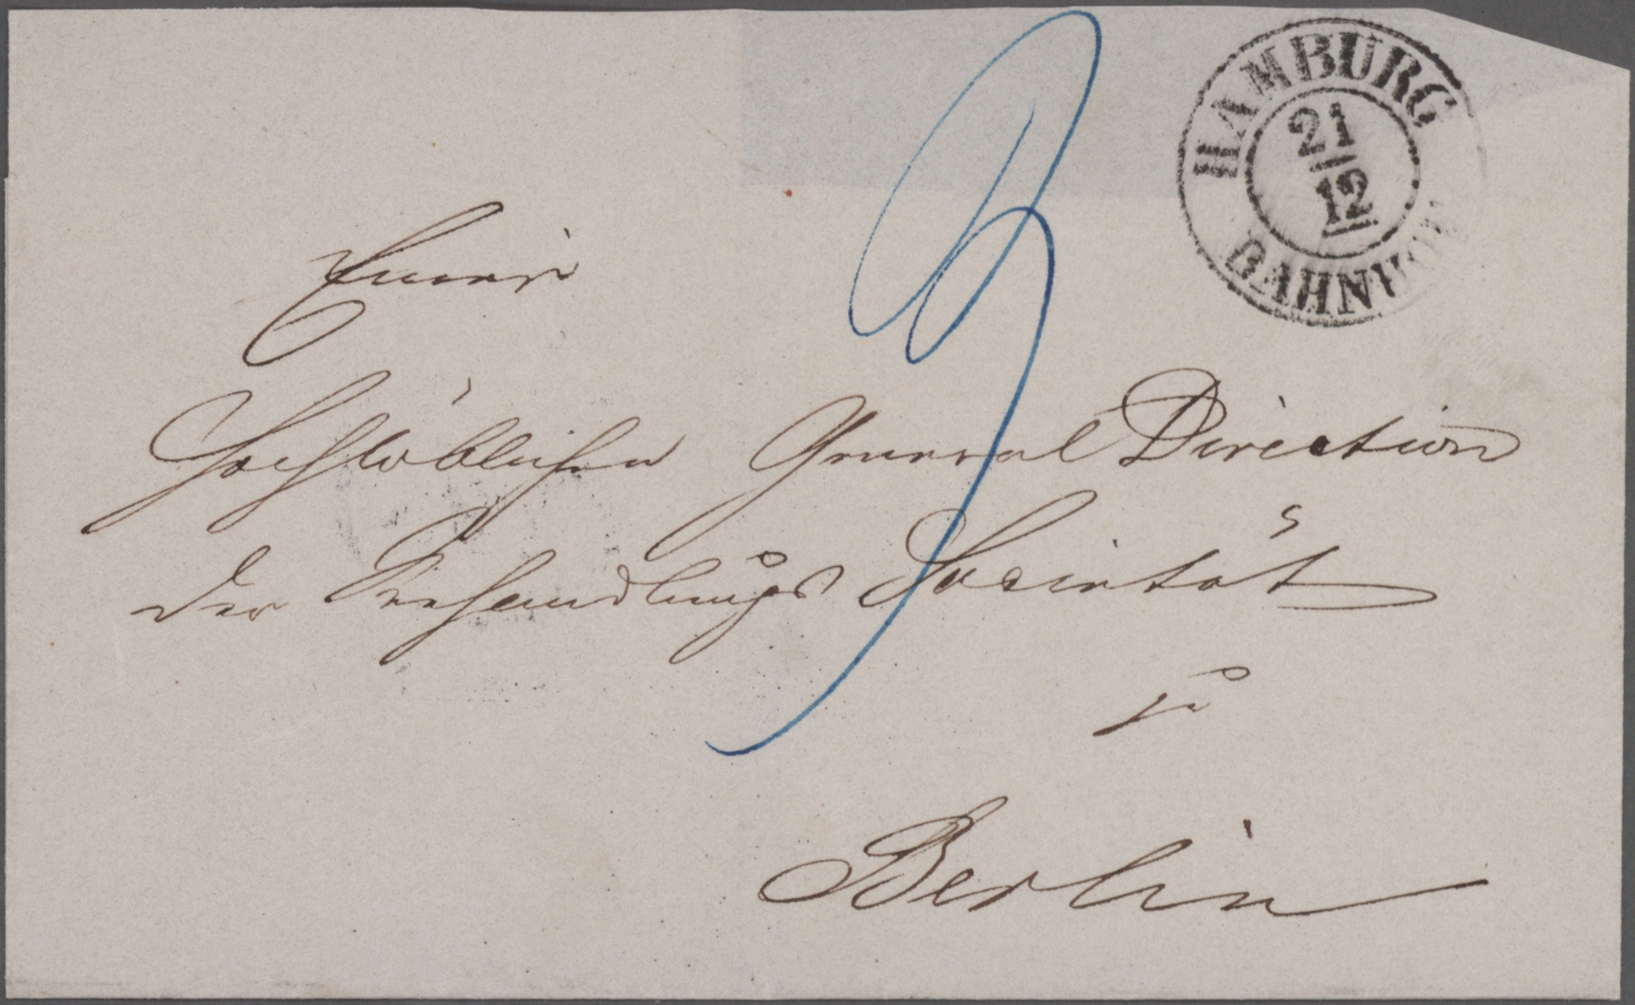 HAMBURG
21
12
BAHNHOF
3
Einer
Hochlöblichen General Direction
der Seehandlungs Societät
zu
Berlin